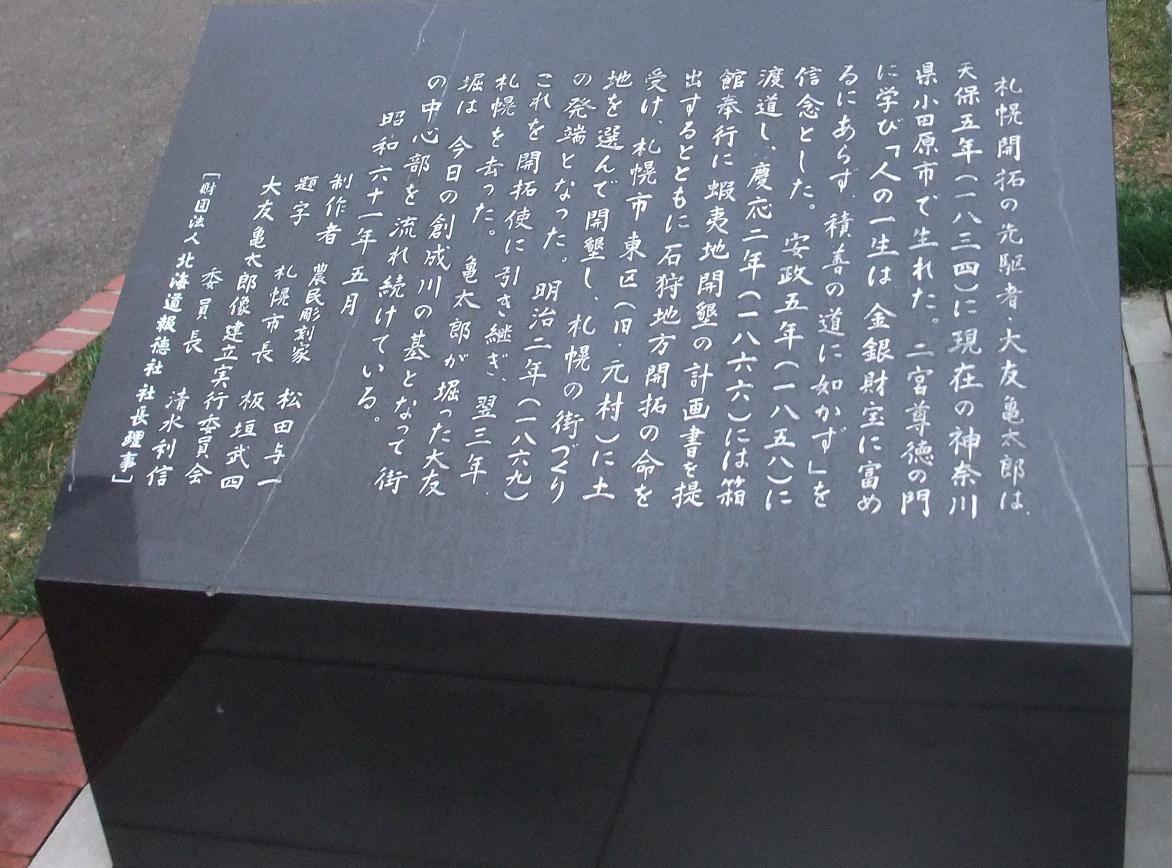 札幌開拓の先駆者・大友亀太郎は、
天保五年(一八三四)に現在の神奈川
県小田原市で生れた。二宮尊徳の門
に学び「人の一生は 金銀財宝に富め
るにあらず、積善の道に如かず」を
信念とした。 安政五年(一八五八)に
渡道し、慶応二年(一八六六)には箱
館奉行に蝦夷地開墾の計画書を提
出するとともに 石狩地方開拓の命を
受け、札幌市東区(旧・元村)に土
地を選んで開墾し、札幌の街づくり
の発端となった。 明治二年(一八六九)
これを開拓使に引き継ぎ、翌三年、
札幌を去った。 亀太郎が堀った大友
堀は 今日の創成川の基となって 街
の中心部を流れ続けている。
昭和六十一年 五月
制作者 農民彫刻家 松田与一
題字 札幌市長 板垣武四
大友亀太郎像建立実行委員会
委員長 清水利信
[財団法人 北海道報徳社 社長理事]